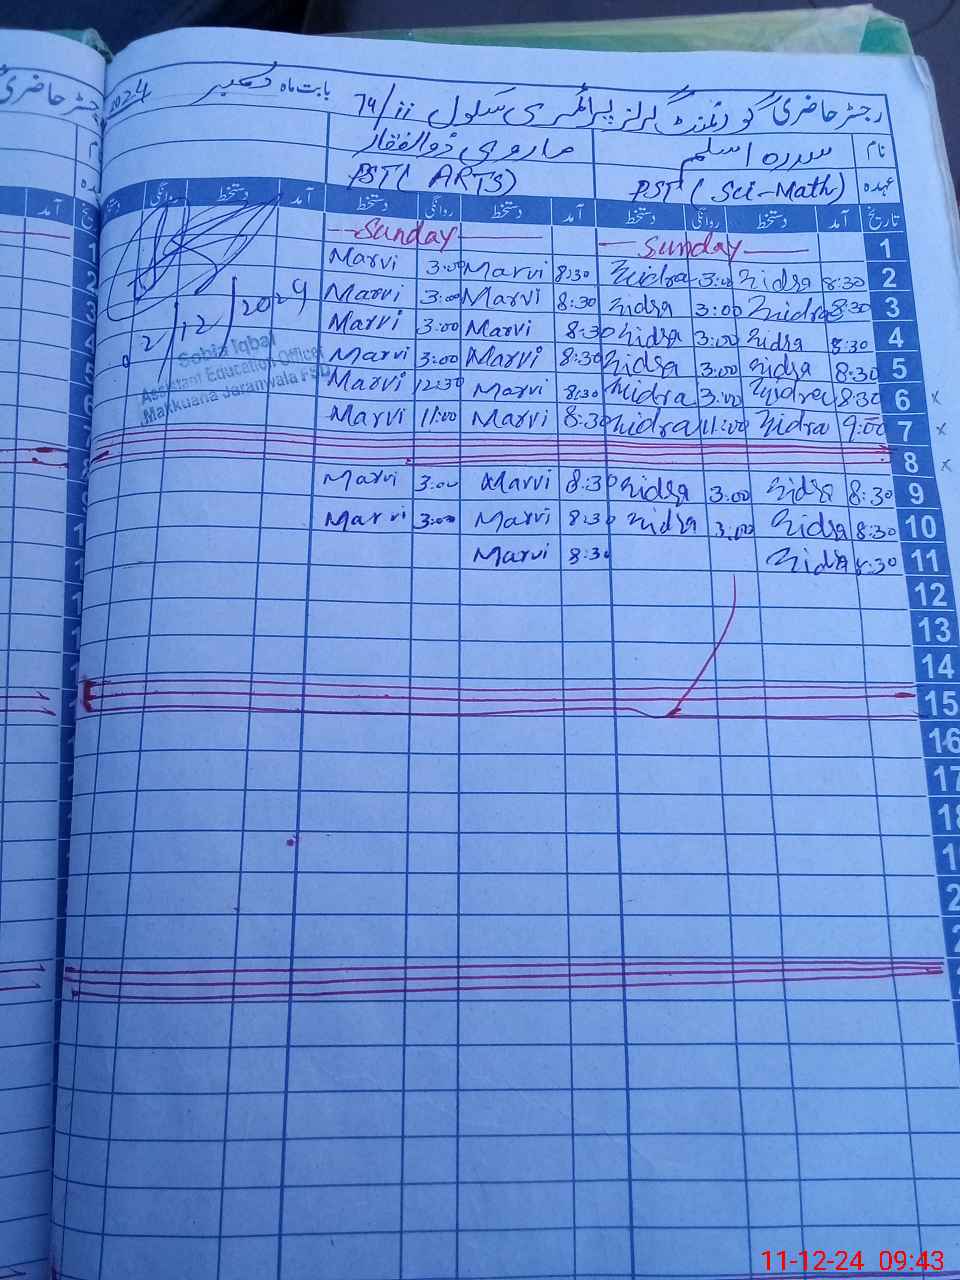 رجسٹر حاضری گورنمنٹ گرلز پرائمری سکول 74/ii بابت ماہ دسمبر 2024
نام سدرہ اسلم ماروی ذوالفقار
عہدہ PST (Sci-Math) PST (ARTS)
تاریخ آمد دستخط روانگی دستخط آمد دستخط روانگی دستخط آمد دستخط روانگی دستخط
1 Sunday Sunday
2 8:30 Sidra 3:00 Sidra 8:30 Marvi 3:00 Marvi
3 8:30 Sidra 3:00 Sidra 8:30 Marvi 3:00 Marvi
4 8:30 Sidra 3:00 Sidra 8:30 Marvi 3:00 Marvi
5 8:30 Sidra 3:00 Sidra 8:30 Marvi 3:00 Marvi
6 8:30 Sidra 3:00 Sidra 8:30 Marvi 12:30 Marvi
7 9:00 Sidra 11:00 Sidra 8:30 Marvi 11:00 Marvi
8
9 8:30 Sidra 3:00 Sidra 8:30 Marvi 3:00 Marvi
10 8:30 Sidra 3:00 Sidra 8:30 Marvi 3:00 Marvi
11 8:30 Sidra 8:30 Marvi
12
13
14
15
16
17
2/12/2024
Sobia Iqbal
Assistant Education Officer
Makkuana Jaranwala FSD
رجسٹر حاضری
آمد تاریخ
11-12-24 09:43